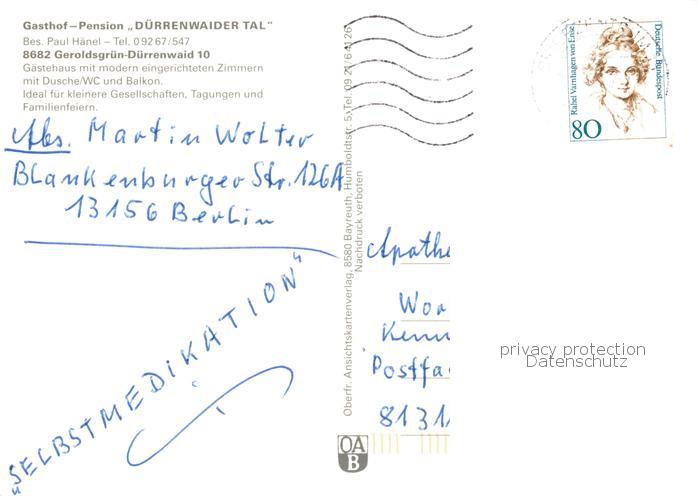 Gasthof–Pension „DÜRRENWAIDER TAL"
Bes. Paul Hänel – Tel. 0 92 67/547
8682 Geroldsgrün-Dürrenwaid 10
Gästehaus mit modern eingerichteten Zimmern
mit Dusche/WC und Balkon.
Ideal für kleinere Gesellschaften, Tagungen und
Familienfeiern.
Abs. Martin Wolter
Blankenburger Str. 126A
13156 Berlin
„SELBSTMEDIKATION"
Oberfr. Ansichtskartenverlag, 8580 Bayreuth, Humboldtstr. 5, Tel.
Nachdruck verboten
Rahel Varnhagen von Ense
Deutsche Bundespost
80
Apothe
Wor
Kenn
Postfa
8131
privacy protection
Datenschutz
OA
B